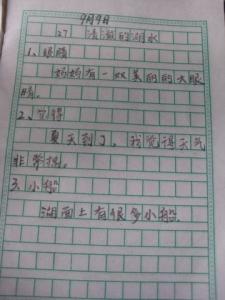 9月9日
27 清澈的湖水
1、眼睛
妈妈有一双美丽的大眼
睛。
2、觉得
夏天到了，我觉得天气
非常热。
3、小船
湖面上有很多小船。